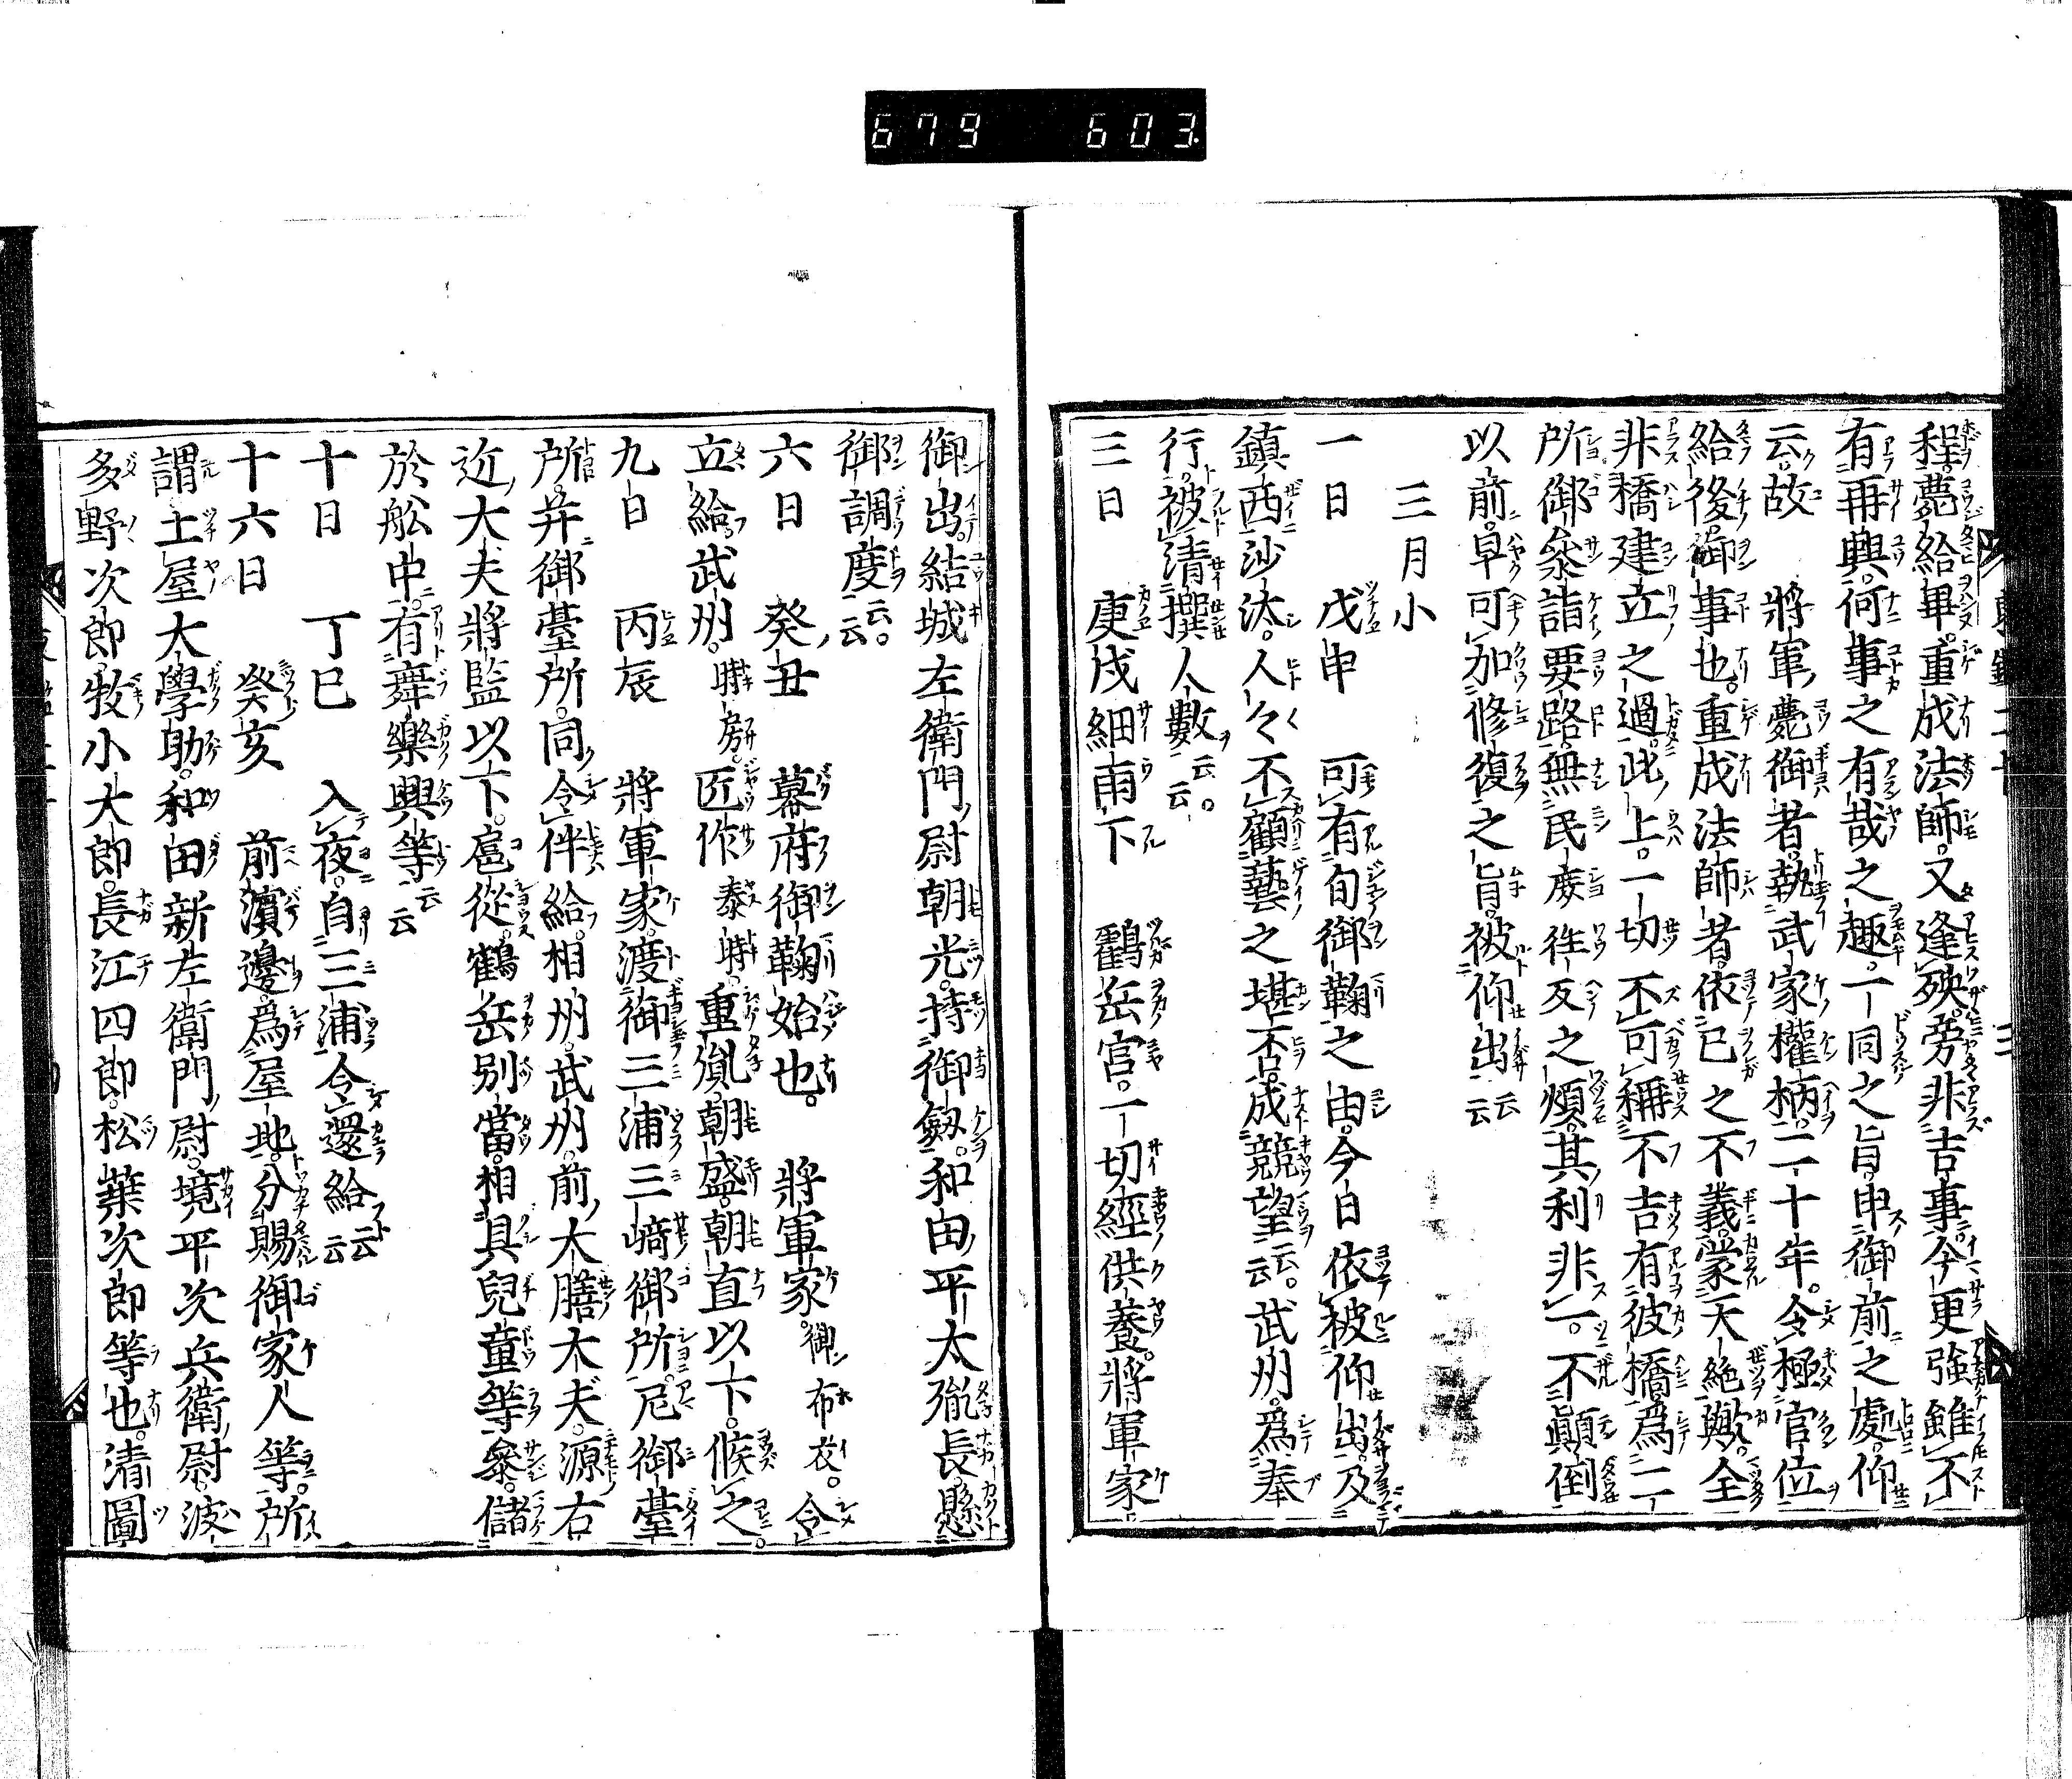 679 603
程。薨給畢。重成法師。又逢殃。旁非吉事。今更強雖不
有再興。何事之有哉之趣。一同之旨。申御前之處。仰
云。故 將軍。薨御者。執武家權柄。二十年。令極官位
給後。御事也。重成法師者。依己之不義。蒙天絶歟。全
非橋建立之過。此上。一切不可稱不吉。有彼橋。爲二
所御參詣要路。無民庶往反之煩。其利非一。不顚倒
以前。早可加修復之旨。被仰出云云
三月小
一日 戊申 可有旬御鞠之由。今日依被仰出。及
鎭西沙汰。人々不顧藝之堪否。成競望云云。武州。爲奉
行。被清撰人數云云。
三日 庚戌細雨下 鶴岳宮。一切經供養。將軍家
御出。結城左衛門尉朝光。持御劔。和田平太胤長。懸
御調度云云。
六日 癸丑 幕府御鞠始也。 將軍家。御布衣。令
立給。武州。時房。匠作 泰時。重胤。朝盛。朝直以下。候之。
九日 丙辰 將軍家。渡御三浦三﨑御所。尼御臺
所。并御臺所。同令伴給。相州。武州。前大膳大夫。源右
近大夫將監以下。扈從。鶴岳別當。相具兒童等參。儲
於舩中。有舞樂興等云云
十日 丁巳 入夜。自三浦令還給云云
十六日 癸亥 前濱邊。爲屋地。分賜御家人等。所
謂土屋大學助。和田新左衛門尉。境平次兵衛尉。波
多野次郎。牧小太郎。長江四郎。松葉次郎等也。清圖